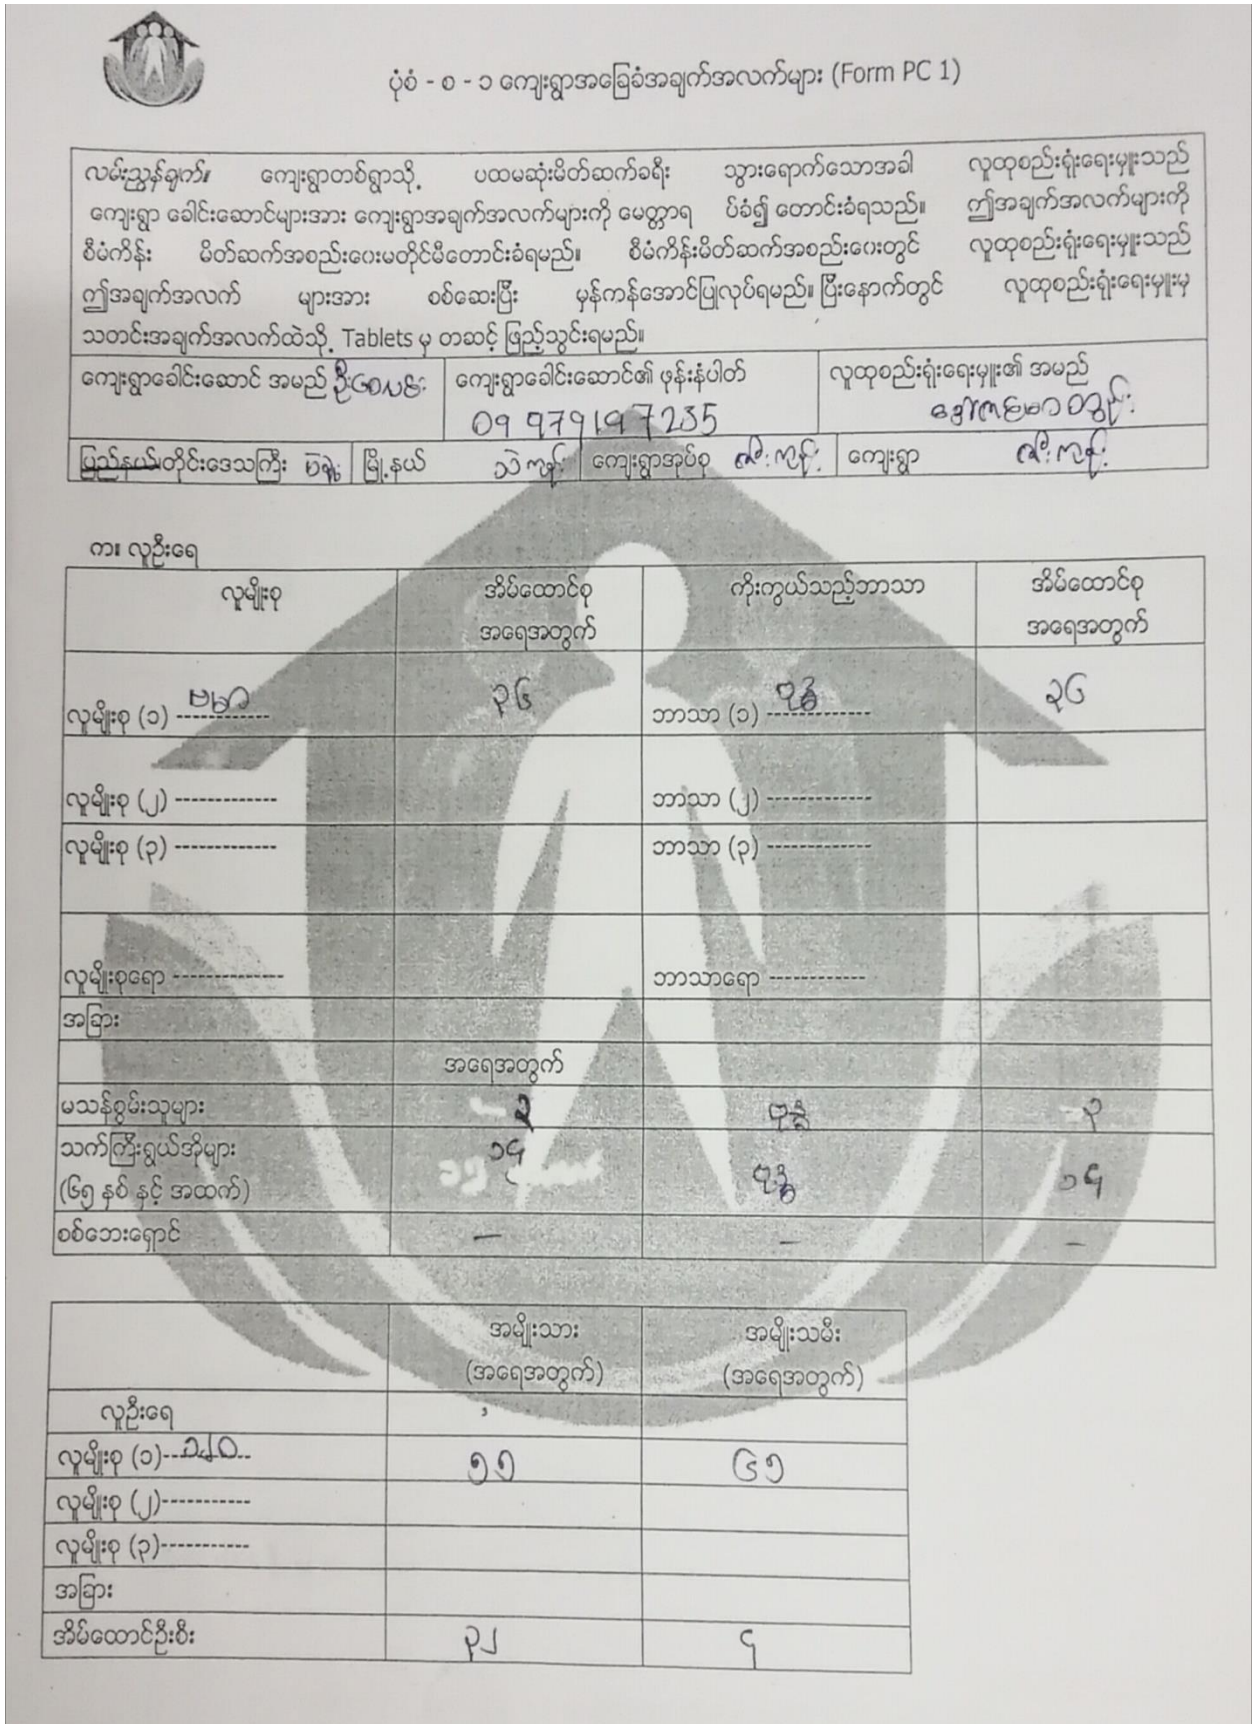 ပုံစံ - စ - ၁ ကျေးရွာအခြေခံအချက်အလက်များ (Form PC 1)
လမ်းညွှန်ချက်။ ကျေးရွာတစ်ရွာသို့ ပထမဆုံးမိတ်ဆက်ခရီး သွားရောက်သောအခါ လူထုစည်းရုံးရေးမှူးသည်
ကျေးရွာ ခေါင်းဆောင်များအား ကျေးရွာအချက်အလက်များကို မေတ္တာရ ပ်ခံ၍ တောင်းခံရသည်။ ဤအချက်အလက်များကို
စီမံကိန်း မိတ်ဆက်အစည်းဝေးမတိုင်မီတောင်းခံရမည်။ စီမံကိန်းမိတ်ဆက်အစည်းဝေးတွင် လူထုစည်းရုံးရေးမှူးသည်
ဤအချက်အလက် များအား စစ်ဆေးပြီး မှန်ကန်အောင်ပြုလုပ်ရမည်။ ပြီးနောက်တွင် လူထုစည်းရုံးရေးမှူးမှ
သတင်းအချက်အလက်ထဲသို့ Tablets မှ တဆင့် ဖြည့်သွင်းရမည်။
ကျေးရွာခေါင်းဆောင် အမည် ဦး ကျေးရွာခေါင်းဆောင်၏ ဖုန်းနံပါတ် လူထုစည်းရုံးရေးမှူး၏ အမည်
09 979197235 ဒေါ်
ပြည်နယ်/တိုင်းဒေသကြီး ပဲခူး မြို့နယ် သဲကုန်း ကျေးရွာအုပ်စု ဇီးကုန်း ကျေးရွာ ဇီးကုန်း
က။ လူဦးရေ
လူမျိုးစု အိမ်ထောင်စု ကိုးကွယ်သည့်ဘာသာ အိမ်ထောင်စု
အရေအတွက် အရေအတွက်
လူမျိုးစု (၁) ဗမာ ၃၆ ဘာသာ (၁) ဗုဒ္ဓ ၃၆
လူမျိုးစု (၂) ------------- ဘာသာ (၂) -------------
လူမျိုးစု (၃) ------------- ဘာသာ (၃) -------------
လူမျိုးစုရော -------------- ဘာသာရော ------------
အခြား
အရေအတွက်
မသန်စွမ်းသူများ ၃ ဗုဒ္ဓ ၃
သက်ကြီးရွယ်အိုများ ၁၄
(၆၅ နှစ် နှင့် အထက်) ဗုဒ္ဓ ၁၄
စစ်ဘေးရှောင် – – –
အမျိုးသား အမျိုးသမီး
(အရေအတွက်) (အရေအတွက်)
လူဦးရေ
လူမျိုးစု (၁) ၁၂၀ ၅၅ ၆၅
လူမျိုးစု (၂)-----------
လူမျိုးစု (၃)-----------
အခြား
အိမ်ထောင်ဦးစီး ၃၂ ၄